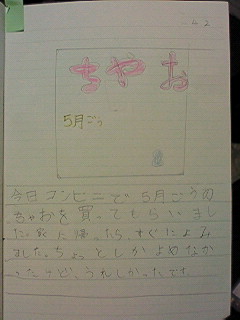 ちゃお
5月ごう
今日コンビニで5月ごうの
ちゃおを買ってもらいまし
た。家に帰ったら、すぐによみ
ました。ちょっとしかよめなか
ったけど、うれしかったです